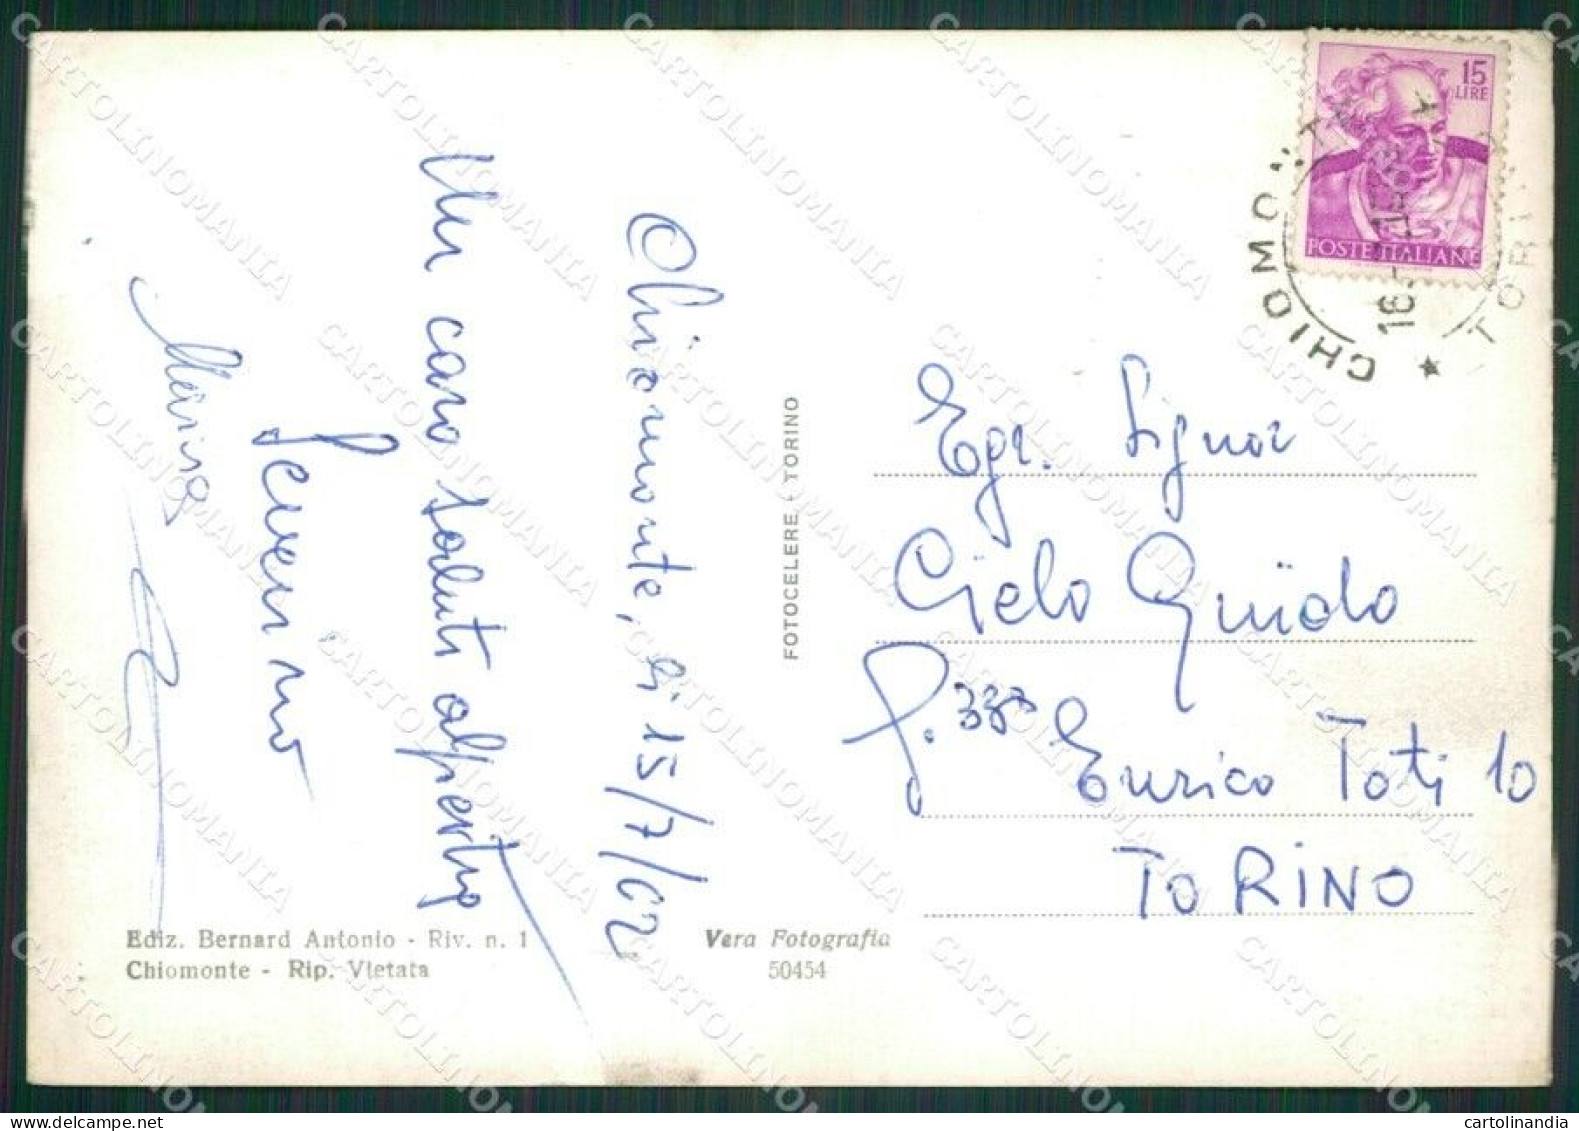 Chiomonte, li 15/7/62
Un caro saluti al perty
Severino
Marisa
Egr. Signor
Cielo Guido
Enrico Toti 10
TORINO
15
LIRE
POSTE ITALIANE
CHIOMONTE
TORINO
FOTOCELERE - TORINO
Ediz. Bernard Antonio - Riv. n. 1
Chiomonte - Rip. Vietata
Vera Fotografia
50454
CARTOLINOMANIA
cartolinandia